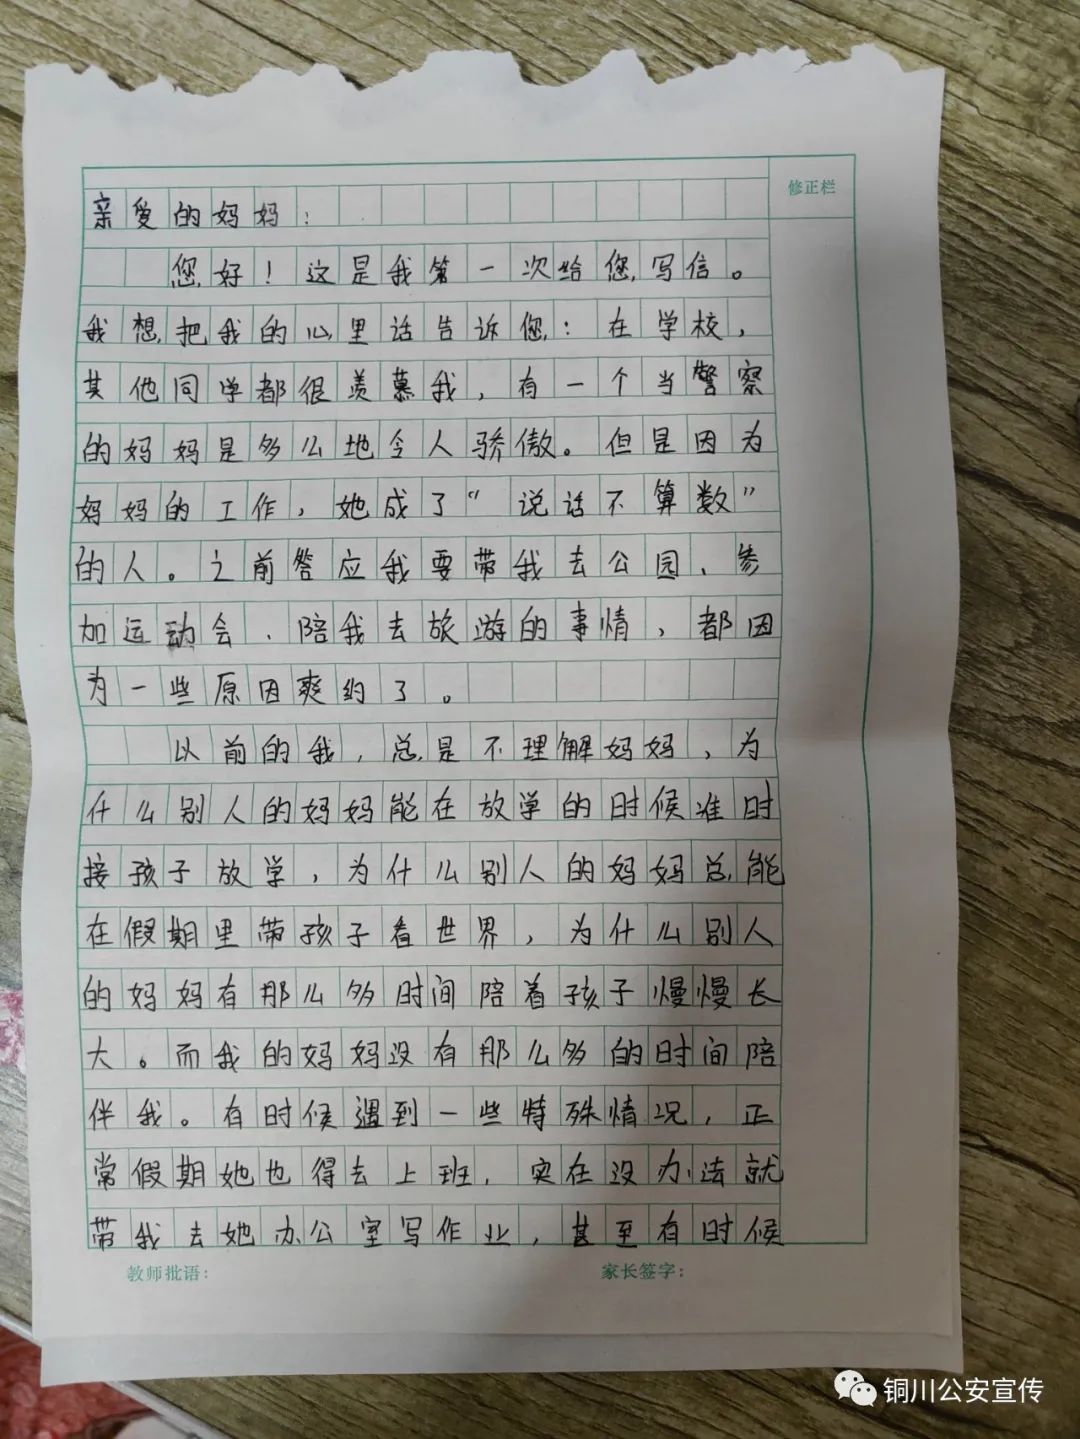 修正栏
亲爱的妈妈：
您好！这是我第一次给您写信。
我想把我的心里话告诉您：在学校，
其他同学都很羡慕我，有一个当警察
的妈妈是多么地令人骄傲。但是因为
妈妈的工作，她成了“说话不算数”
的人。之前答应我要带我去公园、参
加运动会、陪我去旅游的事情，都因
为一些原因爽约了。
以前的我，总是不理解妈妈，为
什么别人的妈妈能在放学的时候准时
接孩子放学，为什么别人的妈妈总能
在假期里带孩子看世界，为什么别人
的妈妈有那么多时间陪着孩子慢慢长
大。而我的妈妈没有那么多的时间陪
伴我。有时候遇到一些特殊情况，正
常假期她也得去上班，实在没办法就
带我去她办公室写作业，甚至有时候
教师批语：
家长签字：
铜川公安宣传